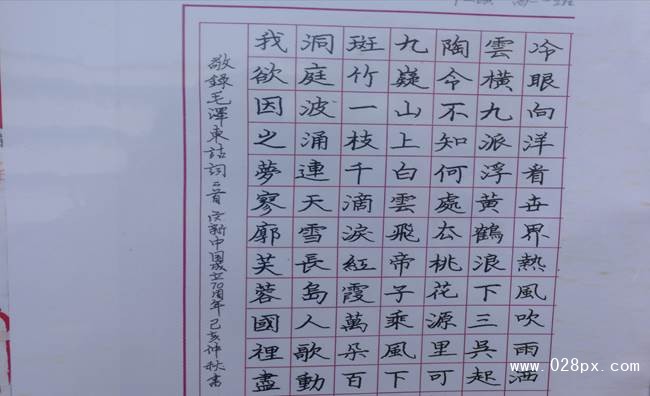 冷眼向洋看世界熱風吹雨洒
雲橫九派浮黃鶴浪下三吳起
陶令不知何處去桃花源里可
九嶷山上白雲飛帝子乘風下
斑竹一枝千滴淚紅霞萬朵百
洞庭波涌連天雪長島人歌動
我欲因之夢寥廓芙蓉國裡盡
敬錄毛澤東詩詞二首 慶新中国成立70周年 己亥仲秋書
www.028px.com